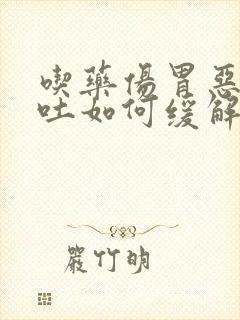 喫藥傷胃惡
吐如何緩解
嚴竹明